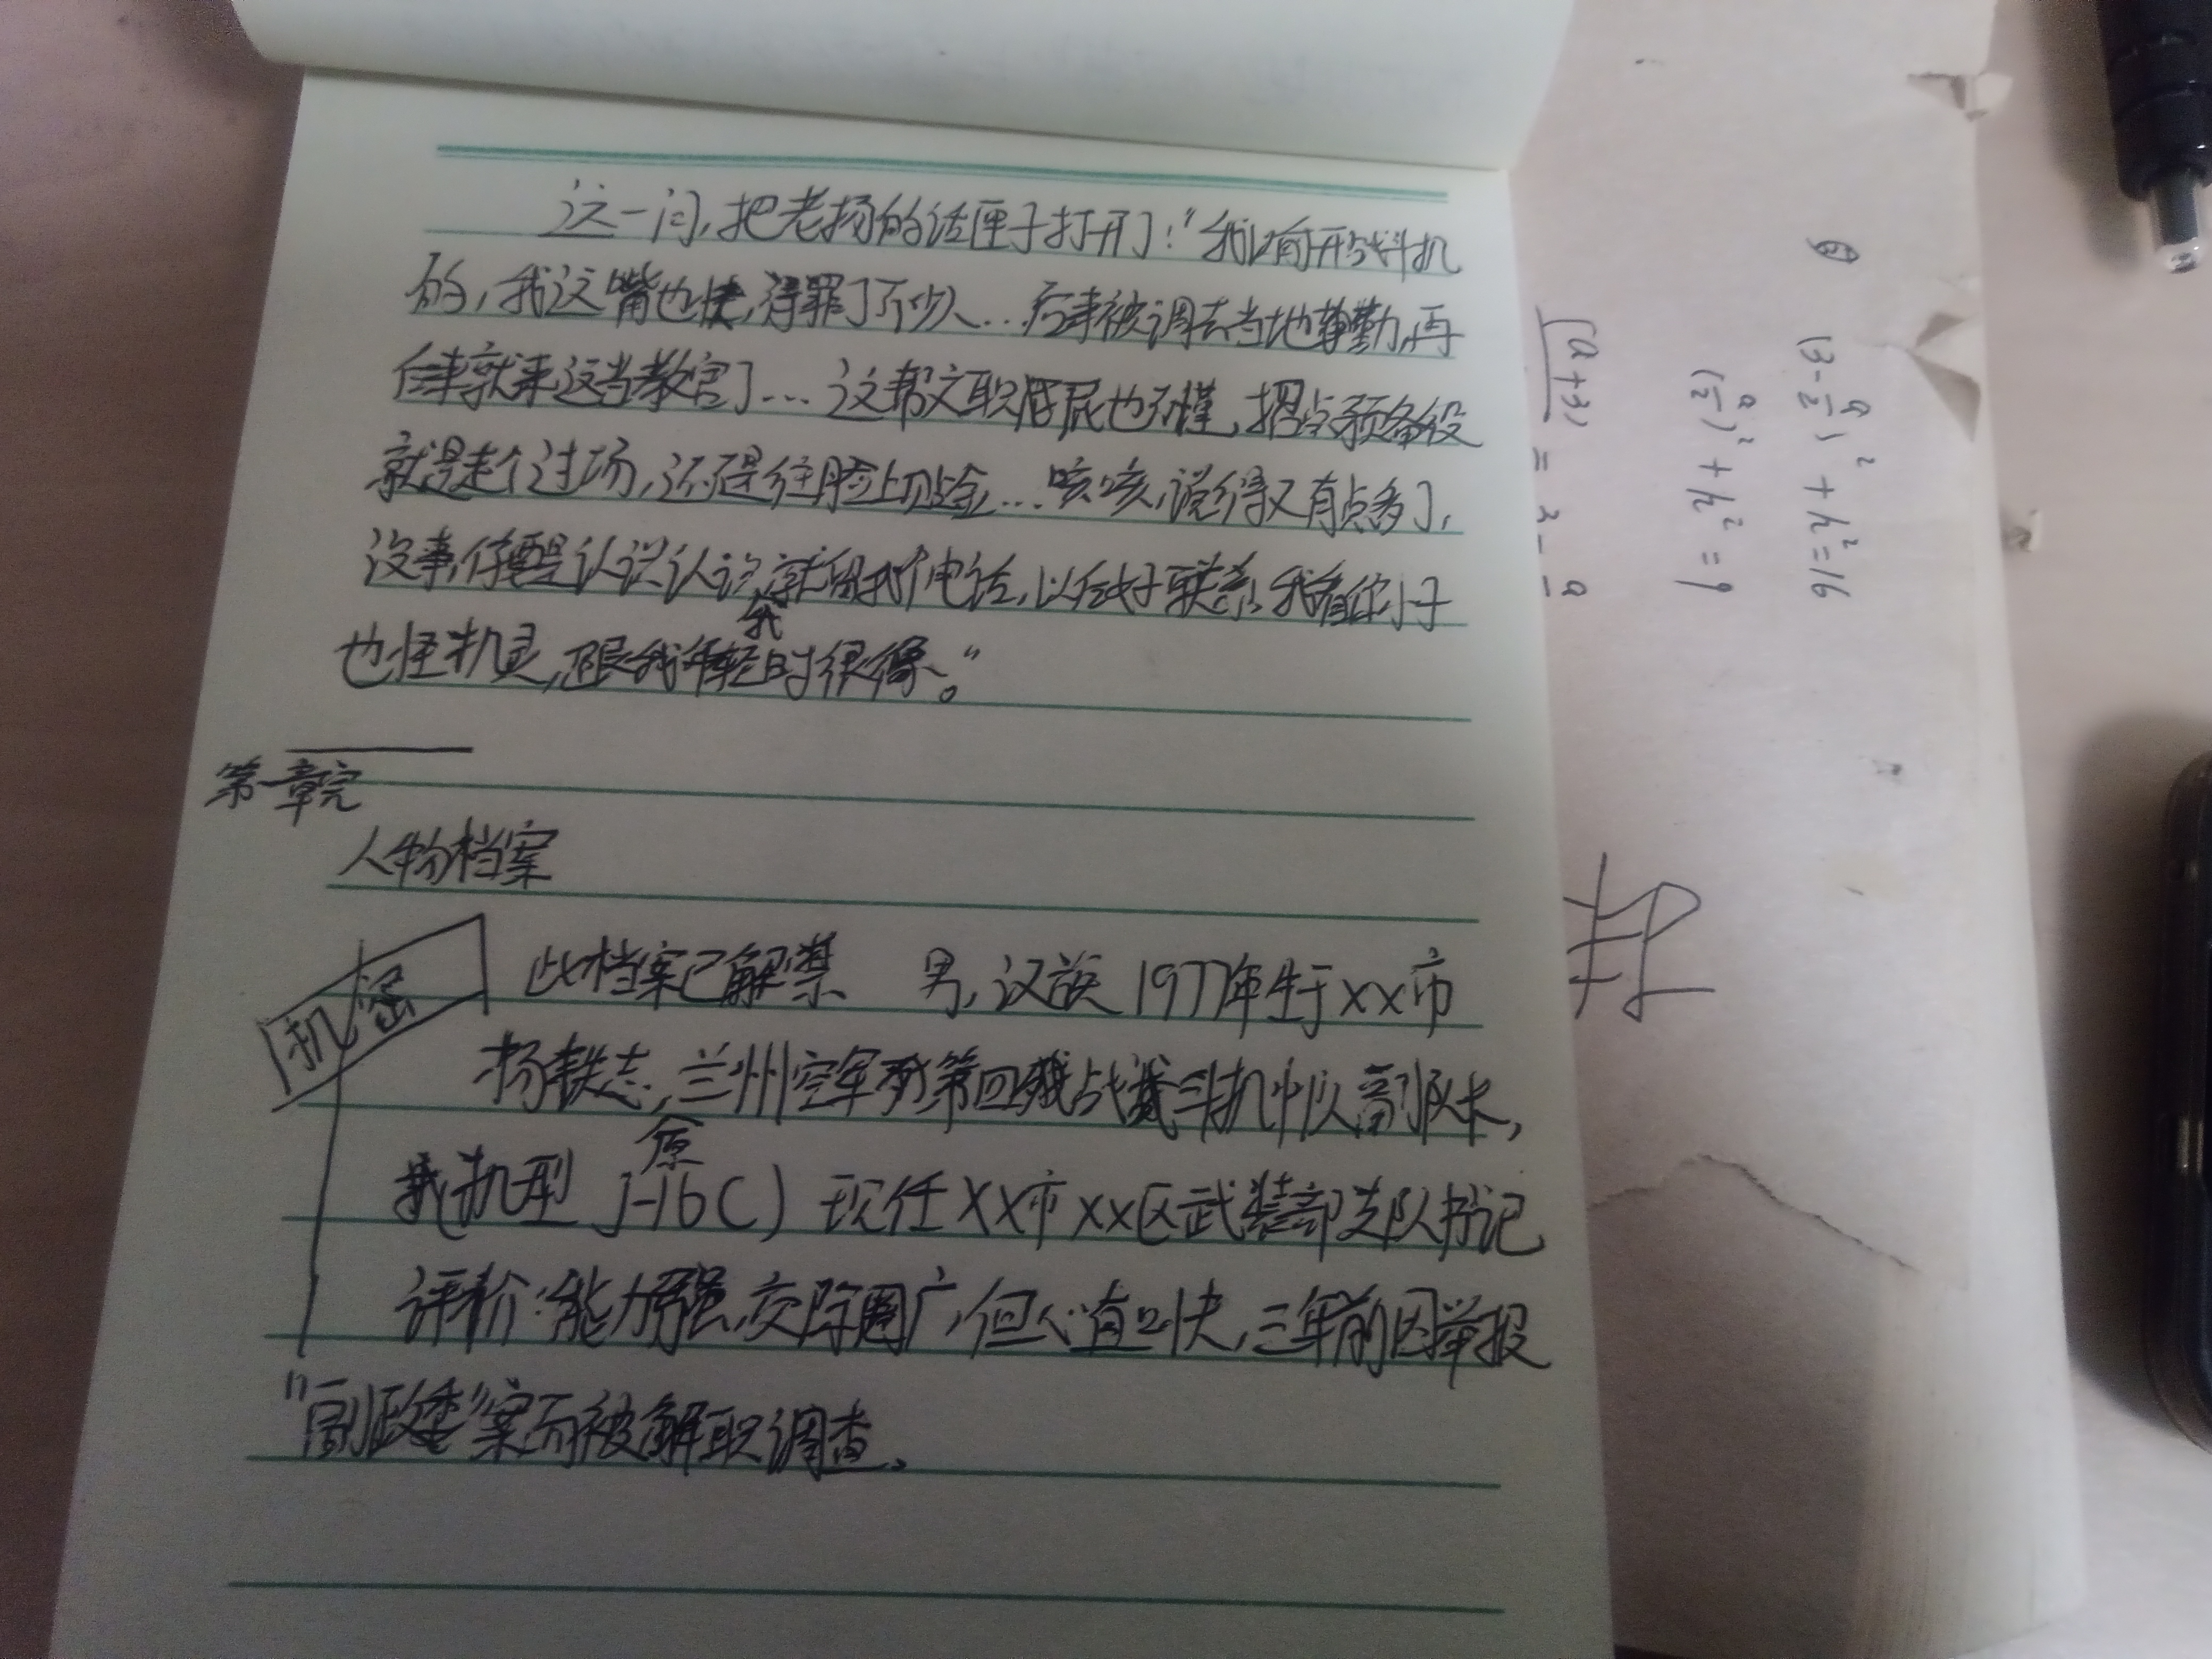 这一问,把老杨的话匣子打开了:"我以前开战斗机
的,我这嘴也快,得罪了不少人...后来被调去当地勤,再
后来就来这当教官了...这帮文职屁也不懂,招点预备役
就是走个过场,还得往脸上贴金...咳咳,说得又有点多了,
没事,你要是认识认识我,就留我个电话,以后好联系,我看你小子
也怪机灵,跟我年轻时很像。"
第一章完
人物档案
机密
此档案已解禁 男,汉族 1977年生于XX市
杨铁志,兰州空军第四战斗机中队副队长,
机型 J-16C) 原 现任XX市XX区武装部支队书记
评价:能力强,交际圈广,但心直口快,三年前因举报
"副政委"案而被解职调查。
⑥
(3-a/2)²+h²=16
(a/2)²+h²=9